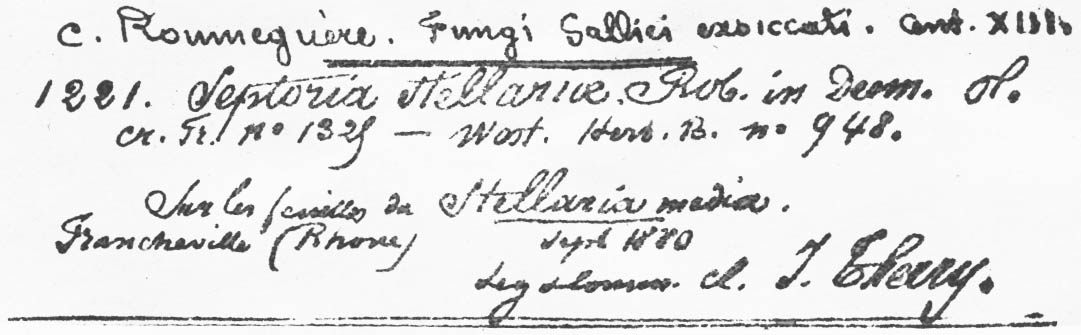 C. Roumeguère. Fungi Gallici exsiccati. Cent. XIII.
1221. Septoria Stellariæ. Rob. in Desm. Pl.
cr. Fr. no 1329 — West. Herb. B. no 948.
Sur les feuilles du Stellaria media.
Francheville (Rhone) Sept 1880
Leg J. Therry.